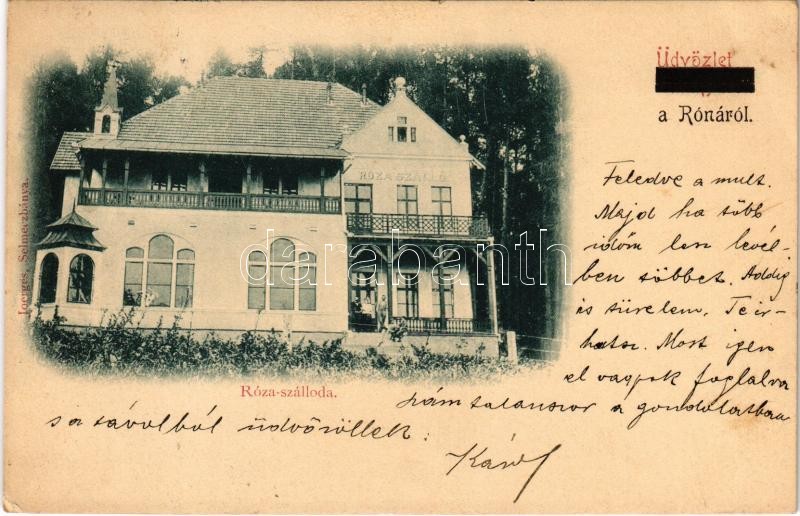 Üdvözlet
a Rónáról.
RÓZA SZÁLLÓ
Joerges, Selmeczbánya.
darabanth
Róza-szálloda.
Feledve a mult.
Majd ha több
időm len levél-
ben többet. Addig
is türelem. Te ir-
hatsz. Most igen
el vagyok foglalva
hám talanszor a gondolatban
s a távolból üdvözöllek:
Károly